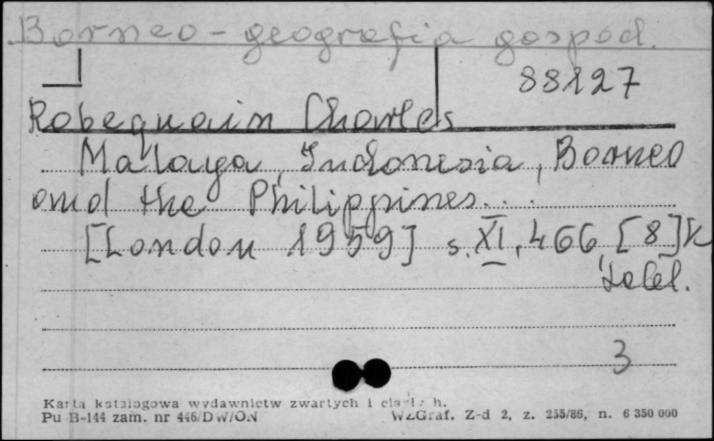 Borneo - geografia gospod.
88127
Robequain Charles
Malaya, Indonesia, Borneo
and the Philippines...
[London 1959] s. XI, 466, [8] k
tabl.
3
Karta katalogowa wydawnictw zwartych i h.
Pu B-144 zam. nr 446/DW/ON WZGraf. Z-d 2, z. 255/86, n. 6 350 000